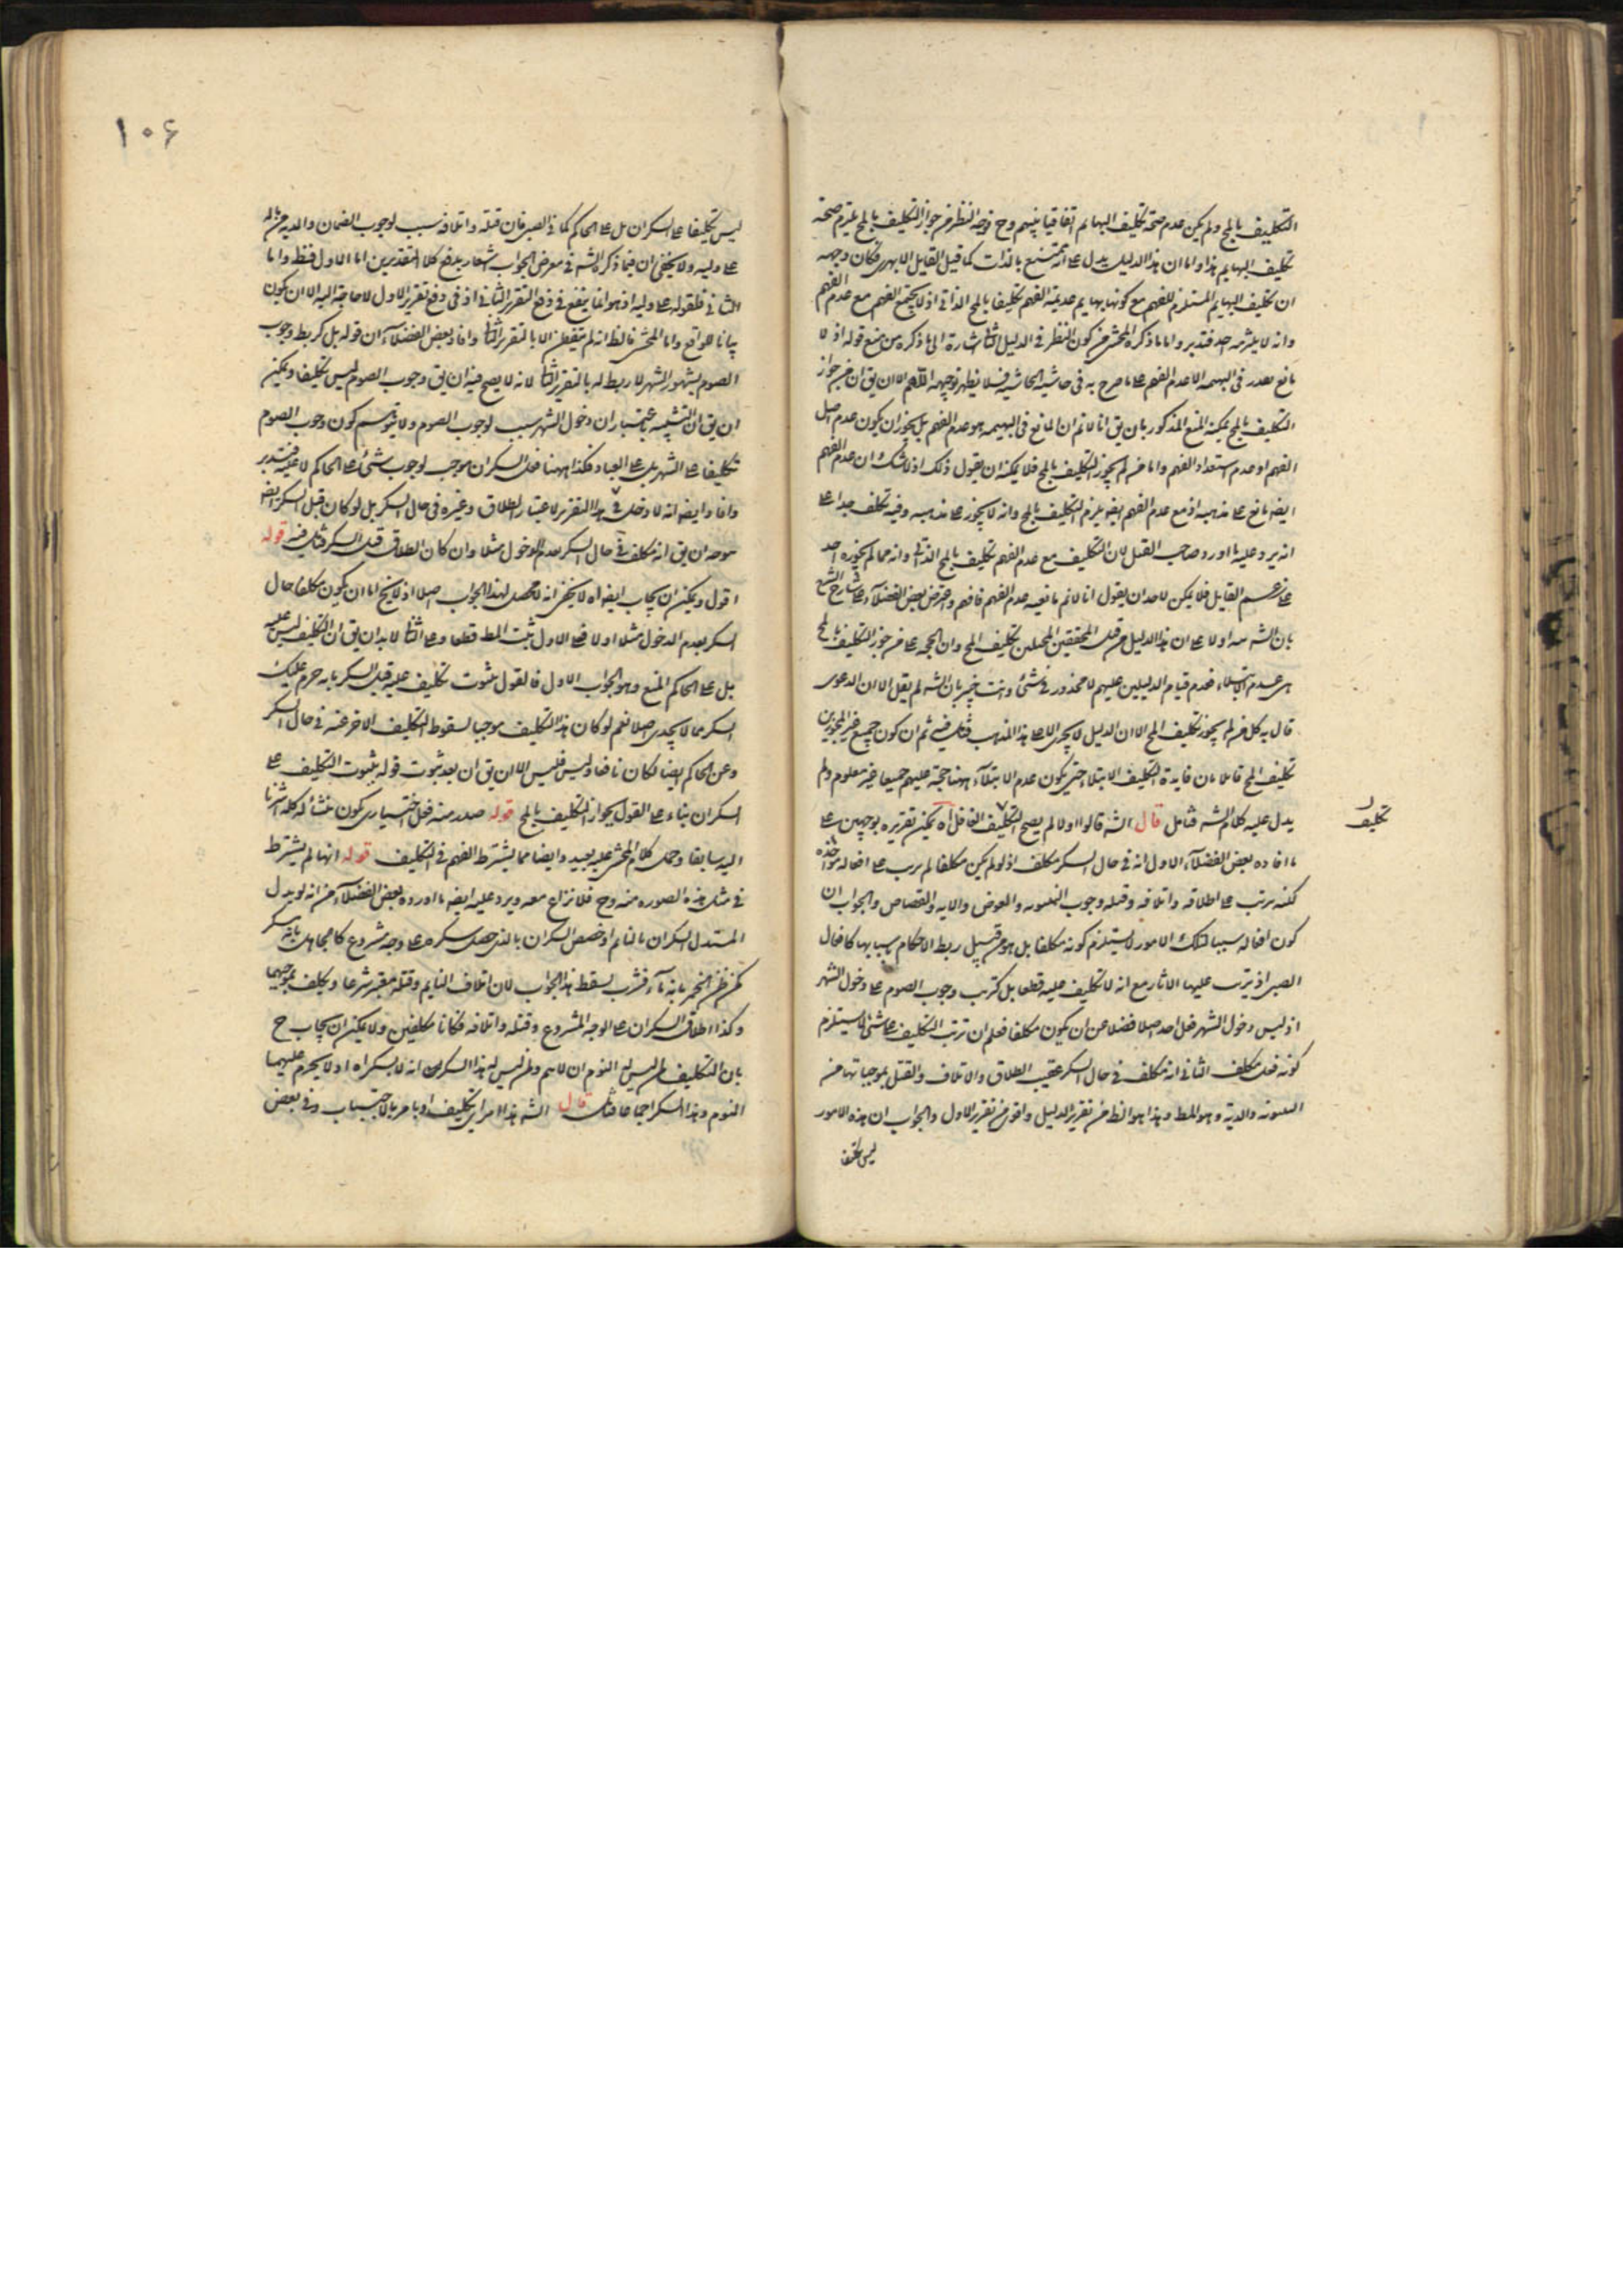 التكليف بالمح ولم يكن عدم صحة تكليف البهايم اتفاقيا بينهم وح توجه النظر من جواز التكليف بالمح يلتزم صحة
تكليف البهايم هذا واما ان هذا الدليل يدل على انه ممتنع بالذات كما قيل القايل الابهرى فكان وجهه
ان تكليف البهايم المستلزم للفهم مع كونها بهايم عديمة الفهم تكليف بالمح الذاتى اذ لا يجتمع الفهم مع عدم الفهم
وانه لا يلتزمه احد فتدبر واما ما ذكره المحشى من كون النظر فى الدليل الثانى اشارة الى ما ذكره من منع قوله اذ لا
مانع يقدر فى البهيمة الا عدم الفهم على ما صرح به فى حاشية الحاشية فلا يظهر توجيهه اللهم الا ان يق ان من جوز
التكليف بالمح يمكنه المنع المذكور بان يق انا لا نم ان المانع فى البهيمة هو عدم الفهم بل يجوز ان يكون عدم اصل
الفهم او عدم استعداد الفهم واما من لم يجوز التكليف بالمح فلا يمكنه ان يقول ذلك اذ لا شك ان عدم الفهم
ايضه مانع على مذهبه اذ مع عدم الفهم ايضه يلزم التكليف بالمح وانه لا يجوز على مذهبه وفيه تكلف جدا على
انه يرد عليه ما اورد صاحب القيل لان التكليف مع عدم الفهم تكليف بالمح الذاتى وانه مما لم يجوزه احد
على زعم القايل فلا يمكن لاحد ان يقول انا لا نم مانعيه عدم الفهم فافهم واعترض بعض الفضلاء على شارح الشرح
بان الشه اولا على ان هذا الدليل من قبل المحققين المحيلين تكليف المح وان الحجة على من جوز التكليف بالمح
هى عدم الابتلاء فعدم قيام الدليلين عليهم لا محذور فى شئ وانت خبير بان الشه لم يقل الا ان الدعوى
قال به كل من لم يجوز تكليف المح الا ان الدليل لا يجرى الا على هذا المذهب فتامل فيه ثم ان كون جميع من المجوزين
تكليف المح قايلا بان فايدة التكليف الابتلاء حتى يكون عدم الابتلاء ههنا حجة عليهم جميعا غير معلوم ولم
يدل عليه كلام الشه فتامل قال الشه قالوا اولا لم يصح التكليف الغافل اه يمكن تقريره بوجهين على
ما افاده بعض الفضلاء الاول انه فى حال السكر مكلف اذ لو لم يكن مكلفا لم يرتب على افعاله مؤاخذه
لكنه يرتب على طلاقه واتلافه وقتله وجوب البينونه والعوض والديه والقصاص والجواب ان
كون افعاله سببا لتلك الامور لا يستلزم كونه مكلفا بل هو من قبيل ربط الاحكام باسبابها كافعال
الصبى اذ يترتب عليها الاثار مع انه لا تكليف عليه قطعا بل كترتب وجوب الصوم على دخول الشهر
اذ ليس دخول الشهر فعل احد اصلا فضلا عن ان يكون مكلفا فعلم ان ترتب التكليف على شئ لا يستلزم
كونه فعل مكلف الثانى انه مكلف فى حال السكر عقيب الطلاق والاتلاف والقتل بموجباتها من
البينونه والدية وهو المط وهذا هو الظ من تقرير الدليل واقوى من تقرير الاول والجواب ان هذه الامور
ليس تكليفا
تكليف
١٠۶
ليس تكليفا على السكران بل على الحاكم كما فى الصبى فان قتله واتلافه سبب لوجوب الضمان والديه من ماله
على وليه ولا يخفى ان فيما ذكره الشه فى معرض الجواب اشعار بدفع كلا التقديرين اما الاول فظ واما
الثانى فلقوله على وليه اذ هو انما ينفع فى دفع التقرير الثانى اذ فى دفع تقرير الاول لا حاجة اليه الا ان يكون
بيانا للواقع واما المحشى فالظ انه لم يتفطن الا بالتقرير الثانى وافاد بعض الفضلاء ان قوله بل كربط وجوب
الصوم بشهود الشهر لا ربط له بالتقرير الثانى لانه لا يصح فيه ان يق وجوب الصوم ليس تكليفا ويمكن
ان يق ان التشبيه باعتبار ان دخول الشهر سبب لوجوب الصوم ولا يتوهم كون وجوب الصوم
تكليفا على الشهر بل على العباد فكذا ههنا فعل السكران موجب لوجوب شئ على الحاكم لا عليه فتدبر
وافاد ايضه انه لا دخل فى هذا التقرير لاعتبار الطلاق وغيره فى حال السكر بل لو كان قبل السكر ايضه
توجه ان يق انه مكلف فى حال السكر بعدم الدخول مثلا وان كان الطلاق قبل السكر فتامل فيه قوله
اقول ويمكن ان يجاب ايضه اه لا يخفى انه لا محصل لهذا الجواب اصلا اذ لا يخ اما ان يكون مكلفا حال
السكر بعدم الدخول مثلا اولا فعلى الاول يثبت المط قطعا وعلى الثانى لا بد ان يق ان التكليف ليس عليه
بل على الحاكم المنع وهو الجواب الاول فالقول بثبوت تكليف عليه قبل السكر بانه حرم عليك
السكر مما لا يجدى اصلا نعم لو كان هذا التكليف موجبا لسقوط التكليف الاخر عنه فى حال السكر
وعن الحاكم ايضا لكان نافعا وليس فليس الا ان يق ان بعد ثبوت قوله بثبوت التكليف على
السكران بناء على القول بجواز التكليف بالمح قوله صدر منه فعل اختيارى كون منشأ له كله اشرنا
اليه سابقا وحمل كلام المحشى عليه بعيد وايضا مما يشترط الفهم فى التكليف قوله انها لم يشترط
فى مثل هذه الصوره منه وح فلا نزاع معه ويرد عليه ايضه ما اورده بعض الفضلاء من انه لو بدل
المستدل السكران بالنايم او خصص السكران بالذى حصل سكره على وجه مشروع كالجاهل بانه مسكر
كمن ظن الخمر بانه ماء فشرب لسقط هذا الجواب لان اتلاف النايم وقتله معتبر شرعا ويكلف بموجبهما
وكذا طلاق السكران على الوجه المشروع وقتله واتلافه فكانا مكلفين ولا يمكن ان يجاب ح
بان التكليف لمن ليس له النوم ان لا نم ولمن ليس له هذا السكر انه لا بسكراه اد لا يحرم عليهما
النوم وهذا السكر اجماعا فتامل قال الشه هذا امر اى تكليف او بامر بالاجتناب وفى بعض